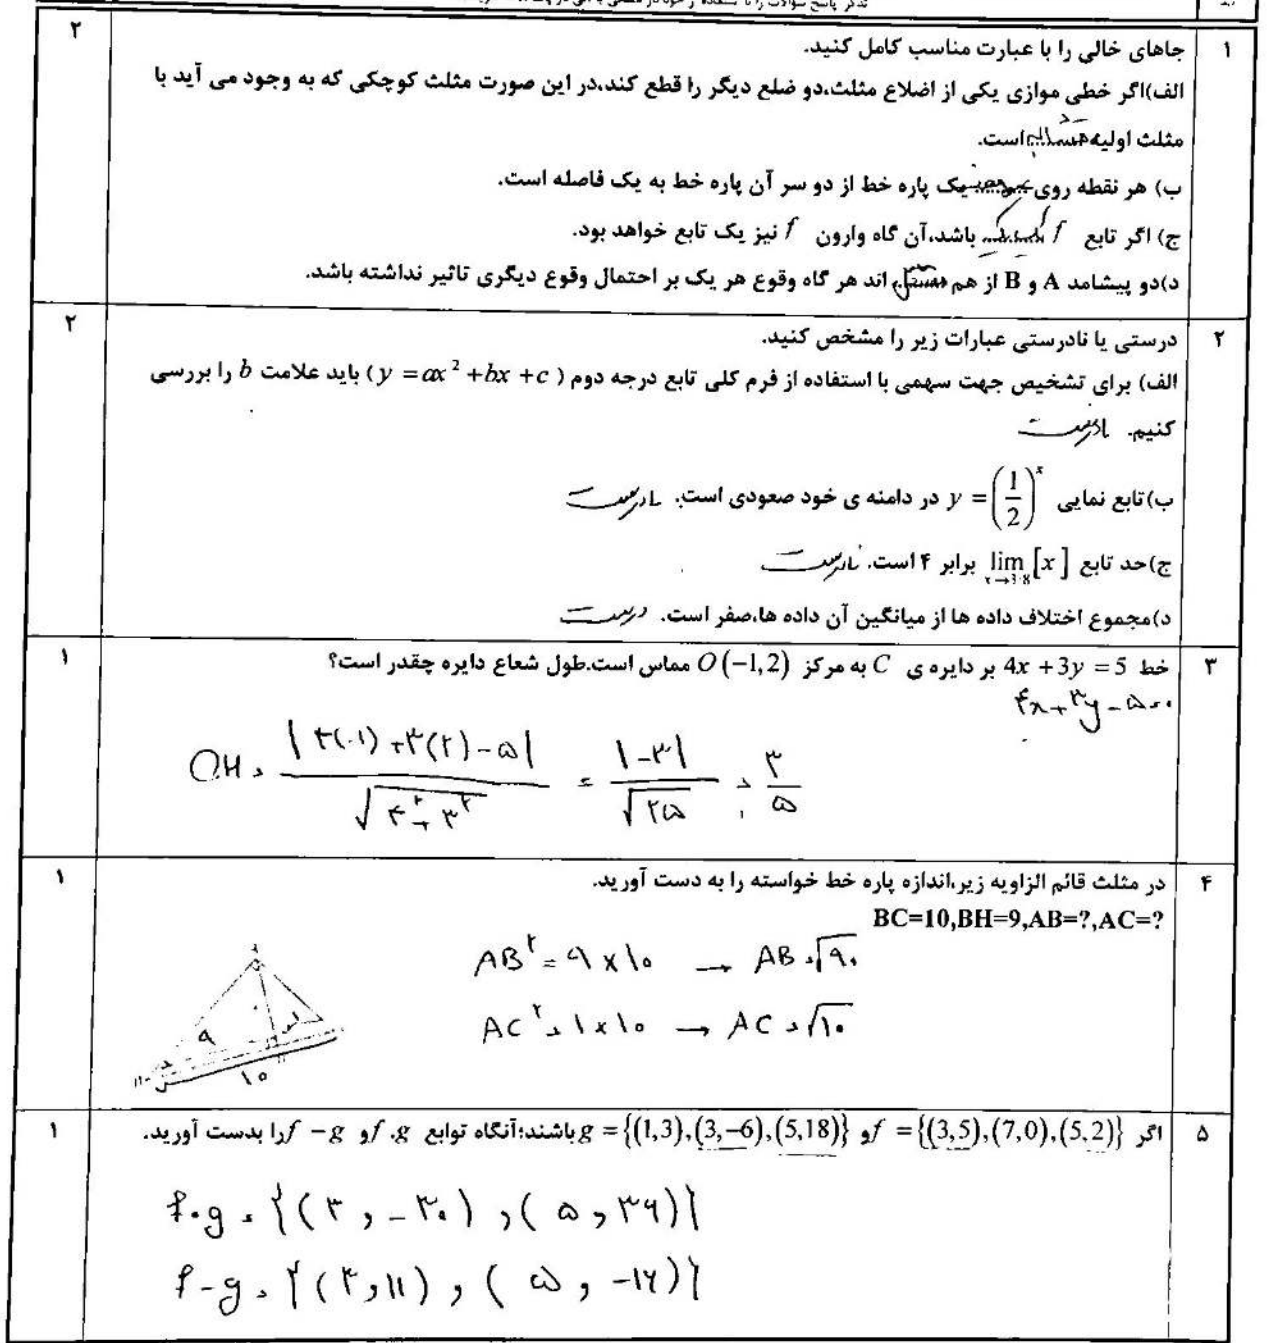 ۲
۱
جاهای خالی را با عبارت مناسب کامل کنید.
الف)اگر خطی موازی یکی از اضلاع مثلث،دو ضلع دیگر را قطع کند،در این صورت مثلث کوچکی که به وجود می آید با
مثلث اولیه متشابه است.
ب) هر نقطه روی عمودمنصف یک پاره خط از دو سر آن پاره خط به یک فاصله است.
ج) اگر تابع f یک به یک باشد،آن گاه وارون f نیز یک تابع خواهد بود.
د)دو پیشامد A و B از هم مستقل اند هر گاه وقوع هر یک بر احتمال وقوع دیگری تاثیر نداشته باشد.
۲
۲
درستی یا نادرستی عبارات زیر را مشخص کنید.
الف) برای تشخیص جهت سهمی با استفاده از فرم کلی تابع درجه دوم ( y = ax² + bx + c ) باید علامت b را بررسی
کنیم. نادرست
ب)تابع نمایی y = (1/2)^x در دامنه ی خود صعودی است. نادرست
ج)حد تابع lim x→3.8 [x] برابر ۴ است. نادرست
د)مجموع اختلاف داده ها از میانگین آن داده ها،صفر است. درست
۱
۳
خط 4x + 3y = 5 بر دایره ی C به مرکز O(−1,2) مماس است.طول شعاع دایره چقدر است؟
۴x + ۳y − ۵ = ۰
OH = |۴(−۱) + ۳(۲) − ۵| / √(۴² + ۳²) = |−۳| / √۲۵ = ۳/۵
۱
۴
در مثلث قائم الزاویه زیر،اندازه پاره خط خواسته را به دست آورید.
BC=10,BH=9,AB=?,AC=?
AB² = ۹ × ۱۰ → AB = √۹۰
AC² = ۱ × ۱۰ → AC = √۱۰
۹
۱
۱۰
۱
۵
اگر f = {(3,5),(7,0),(5,2)} و g = {(1,3),(3,−6),(5,18)} باشند؛آنگاه توابع f.g و f − g را بدست آورید.
f.g = {(۳ , −۳۰) , (۵ , ۳۶)}
f-g = {(۳,۱۱) , (۵ , −۱۶)}